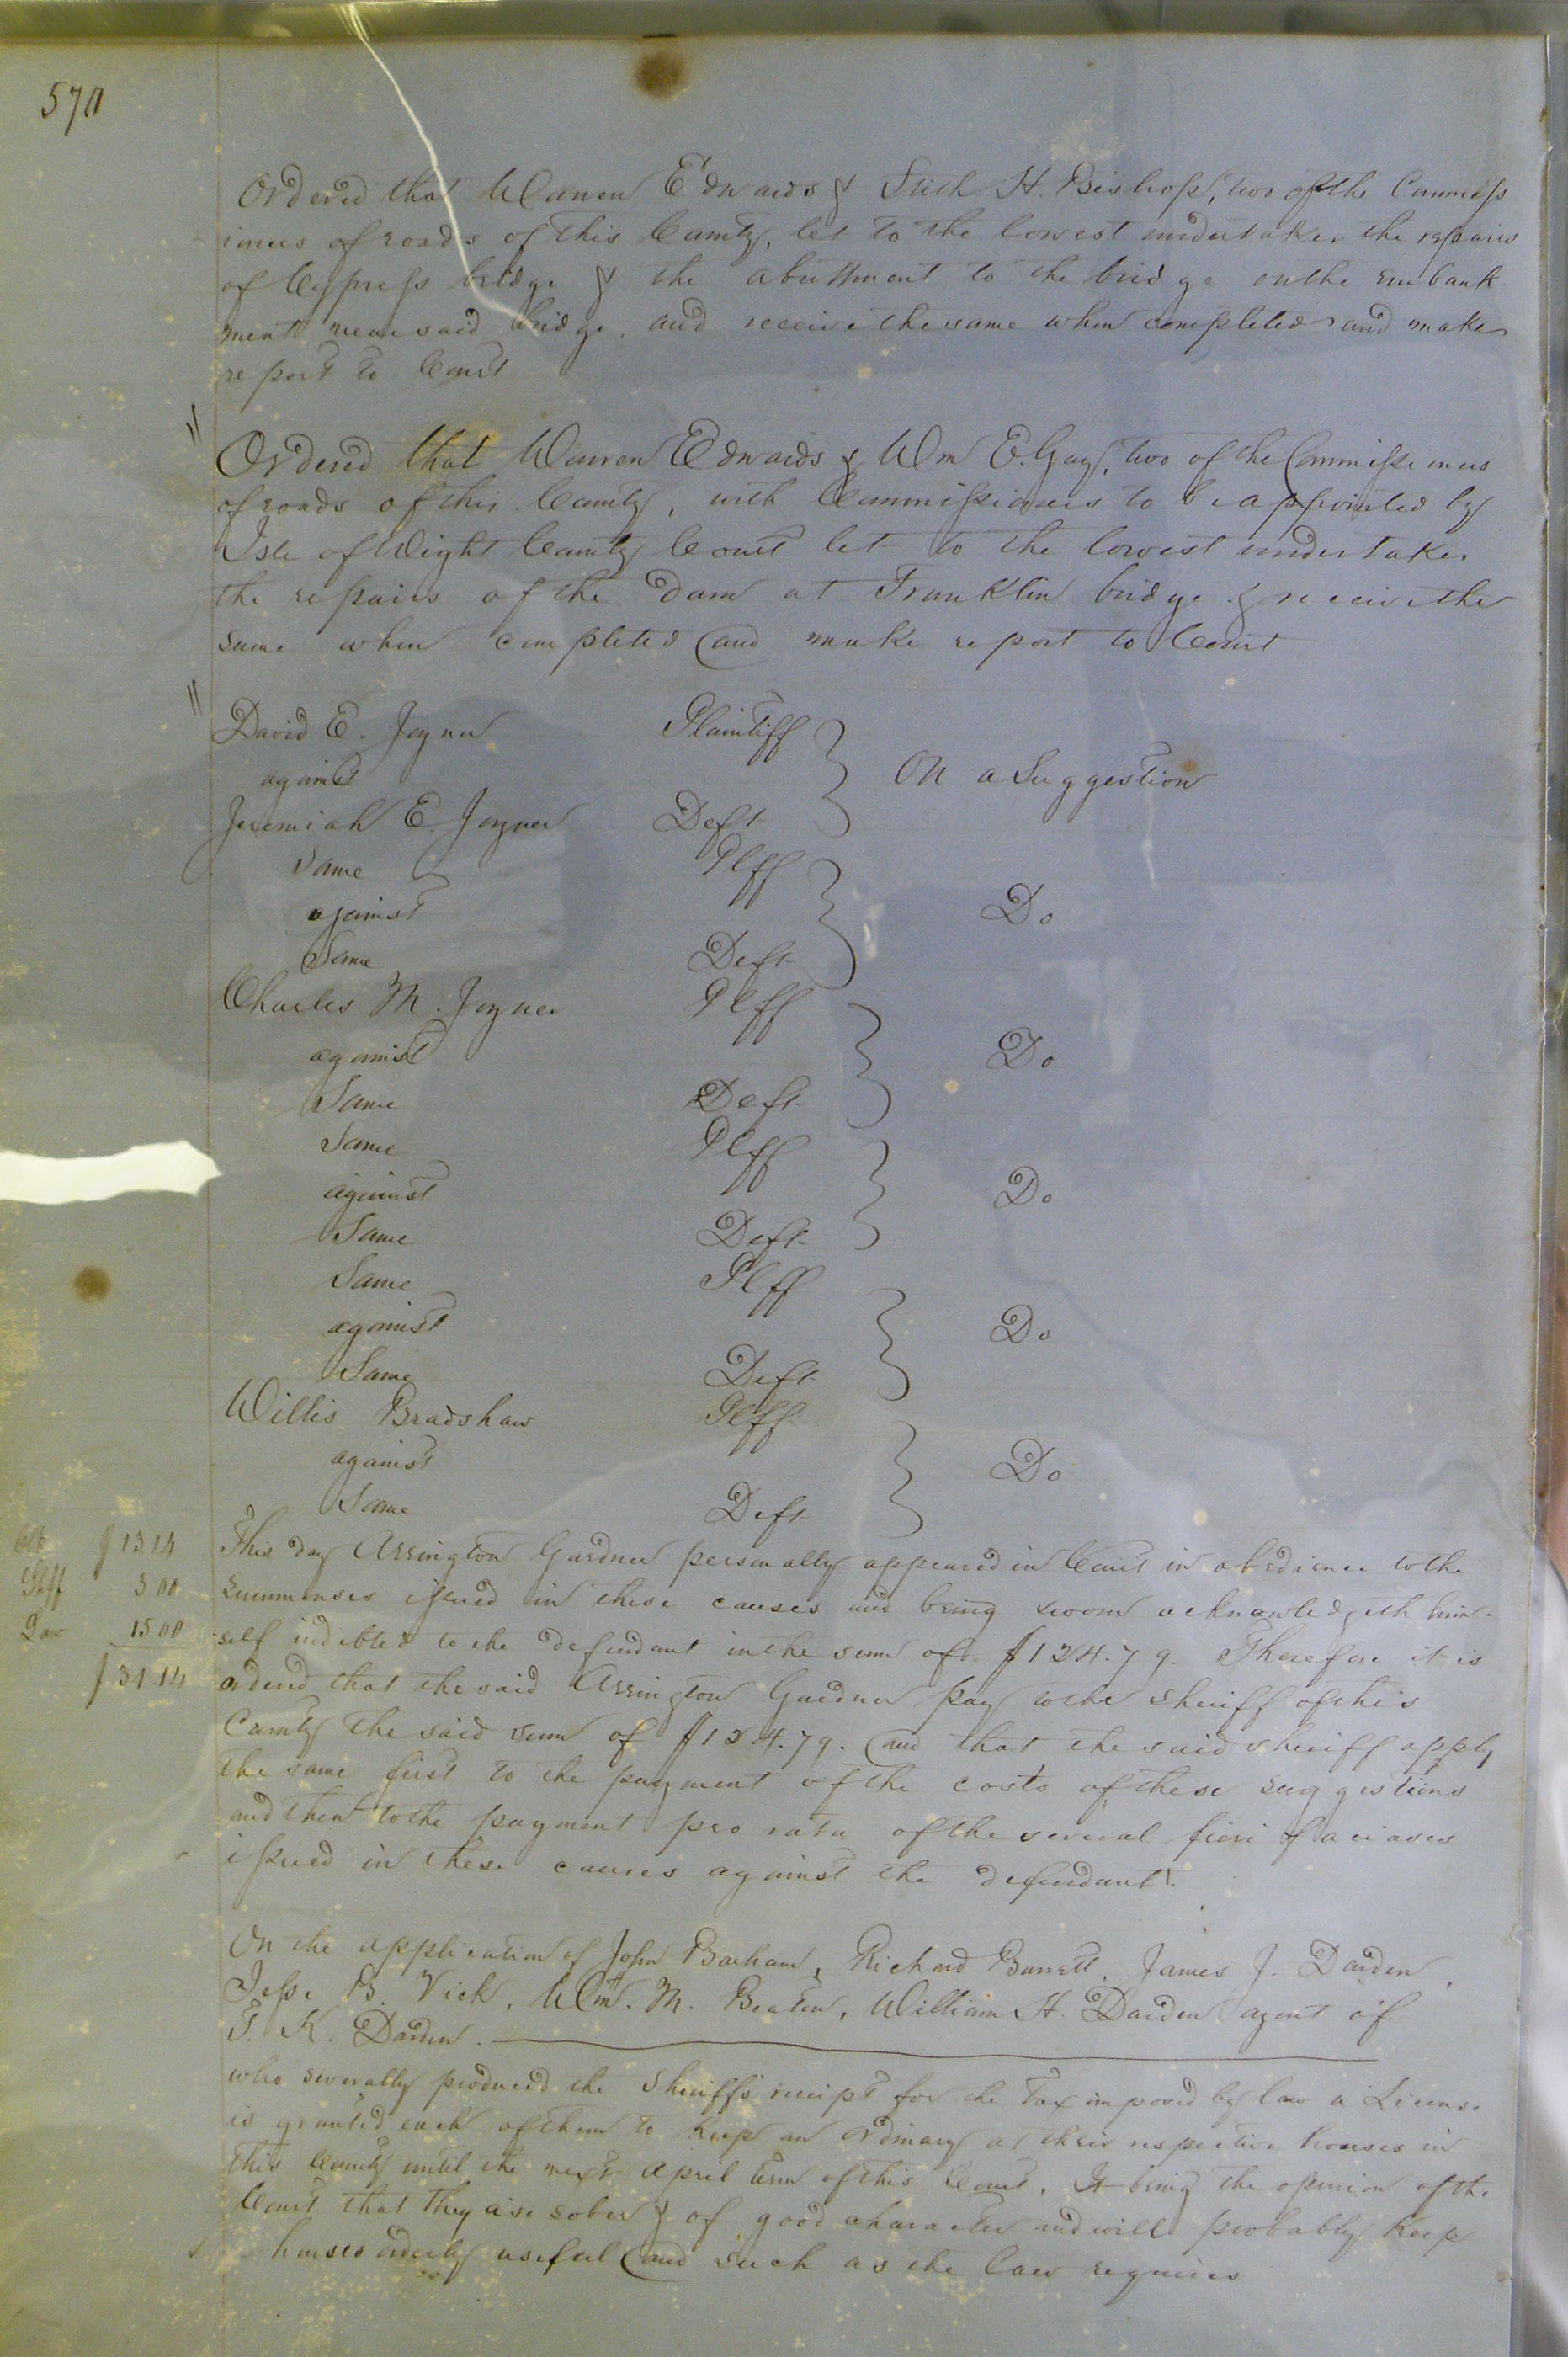 570
Ordered that Warren Edwards & Stith H. Bishop, two of the Commiss
ioners of roads of this County, let to the lowest undertaker the repairs
of Cypress bridge & the abuttment to the bridge on the embank-
ment near said bridge, and receive the same when completed and make
report to Court
"
Ordered that Warren Edwards & Wm E. Gay, two of the Commissioners
of roads of this County, with Commissioners to be appointed by
Isle of Wight County Court let to the lowest undertaker
the repairs of the dam at Franklin bridge & receive the
same when completed and make report to Court
"
David E. Joyner Plaintiff
against On a Suggestion
Jeremiah E. Joyner Deft
Same Plff
against Do
Same Deft
Charles M. Joyner Plff
against Do
Same Deft
Same Plff
against Do
Same Deft
Same Plff
against Do
Same Deft
Willis Bradshaw Plff
against Do
Same Deft
Clk $13.14
Shff 3 00
Law 15 00
$31.14
This day Arrington Gardner personally appeared in Court in obedience to the
summonses issued in these causes and being sworn acknowledgeth him-
self indebted to the defendant in the sum of $124.79. Therefore it is
ordered that the said Arrington Gardner pay to the sheriff of this
County the said sum of $124.79. and that the said sheriff apply
the same first to the payment of the costs of these suggestions
and then to the payment pro rata of the several fieri faciases
issued in these causes against the defendant.
On the application of John Barham, Richard Barrett, James J. Darden,
Jesse B. Vick, Wm. M. Beaton, William H. Darden agent of
T. K. Darden.
who severally produced the sheriff's receipt for the Tax imposed by law a License
is granted each of them to keep an ordinary at their respective houses in
this County until the next April term of this Court, It being the opinion of the
Court that they are sober & of good character and will probably keep
houses orderly useful and such as the law requires